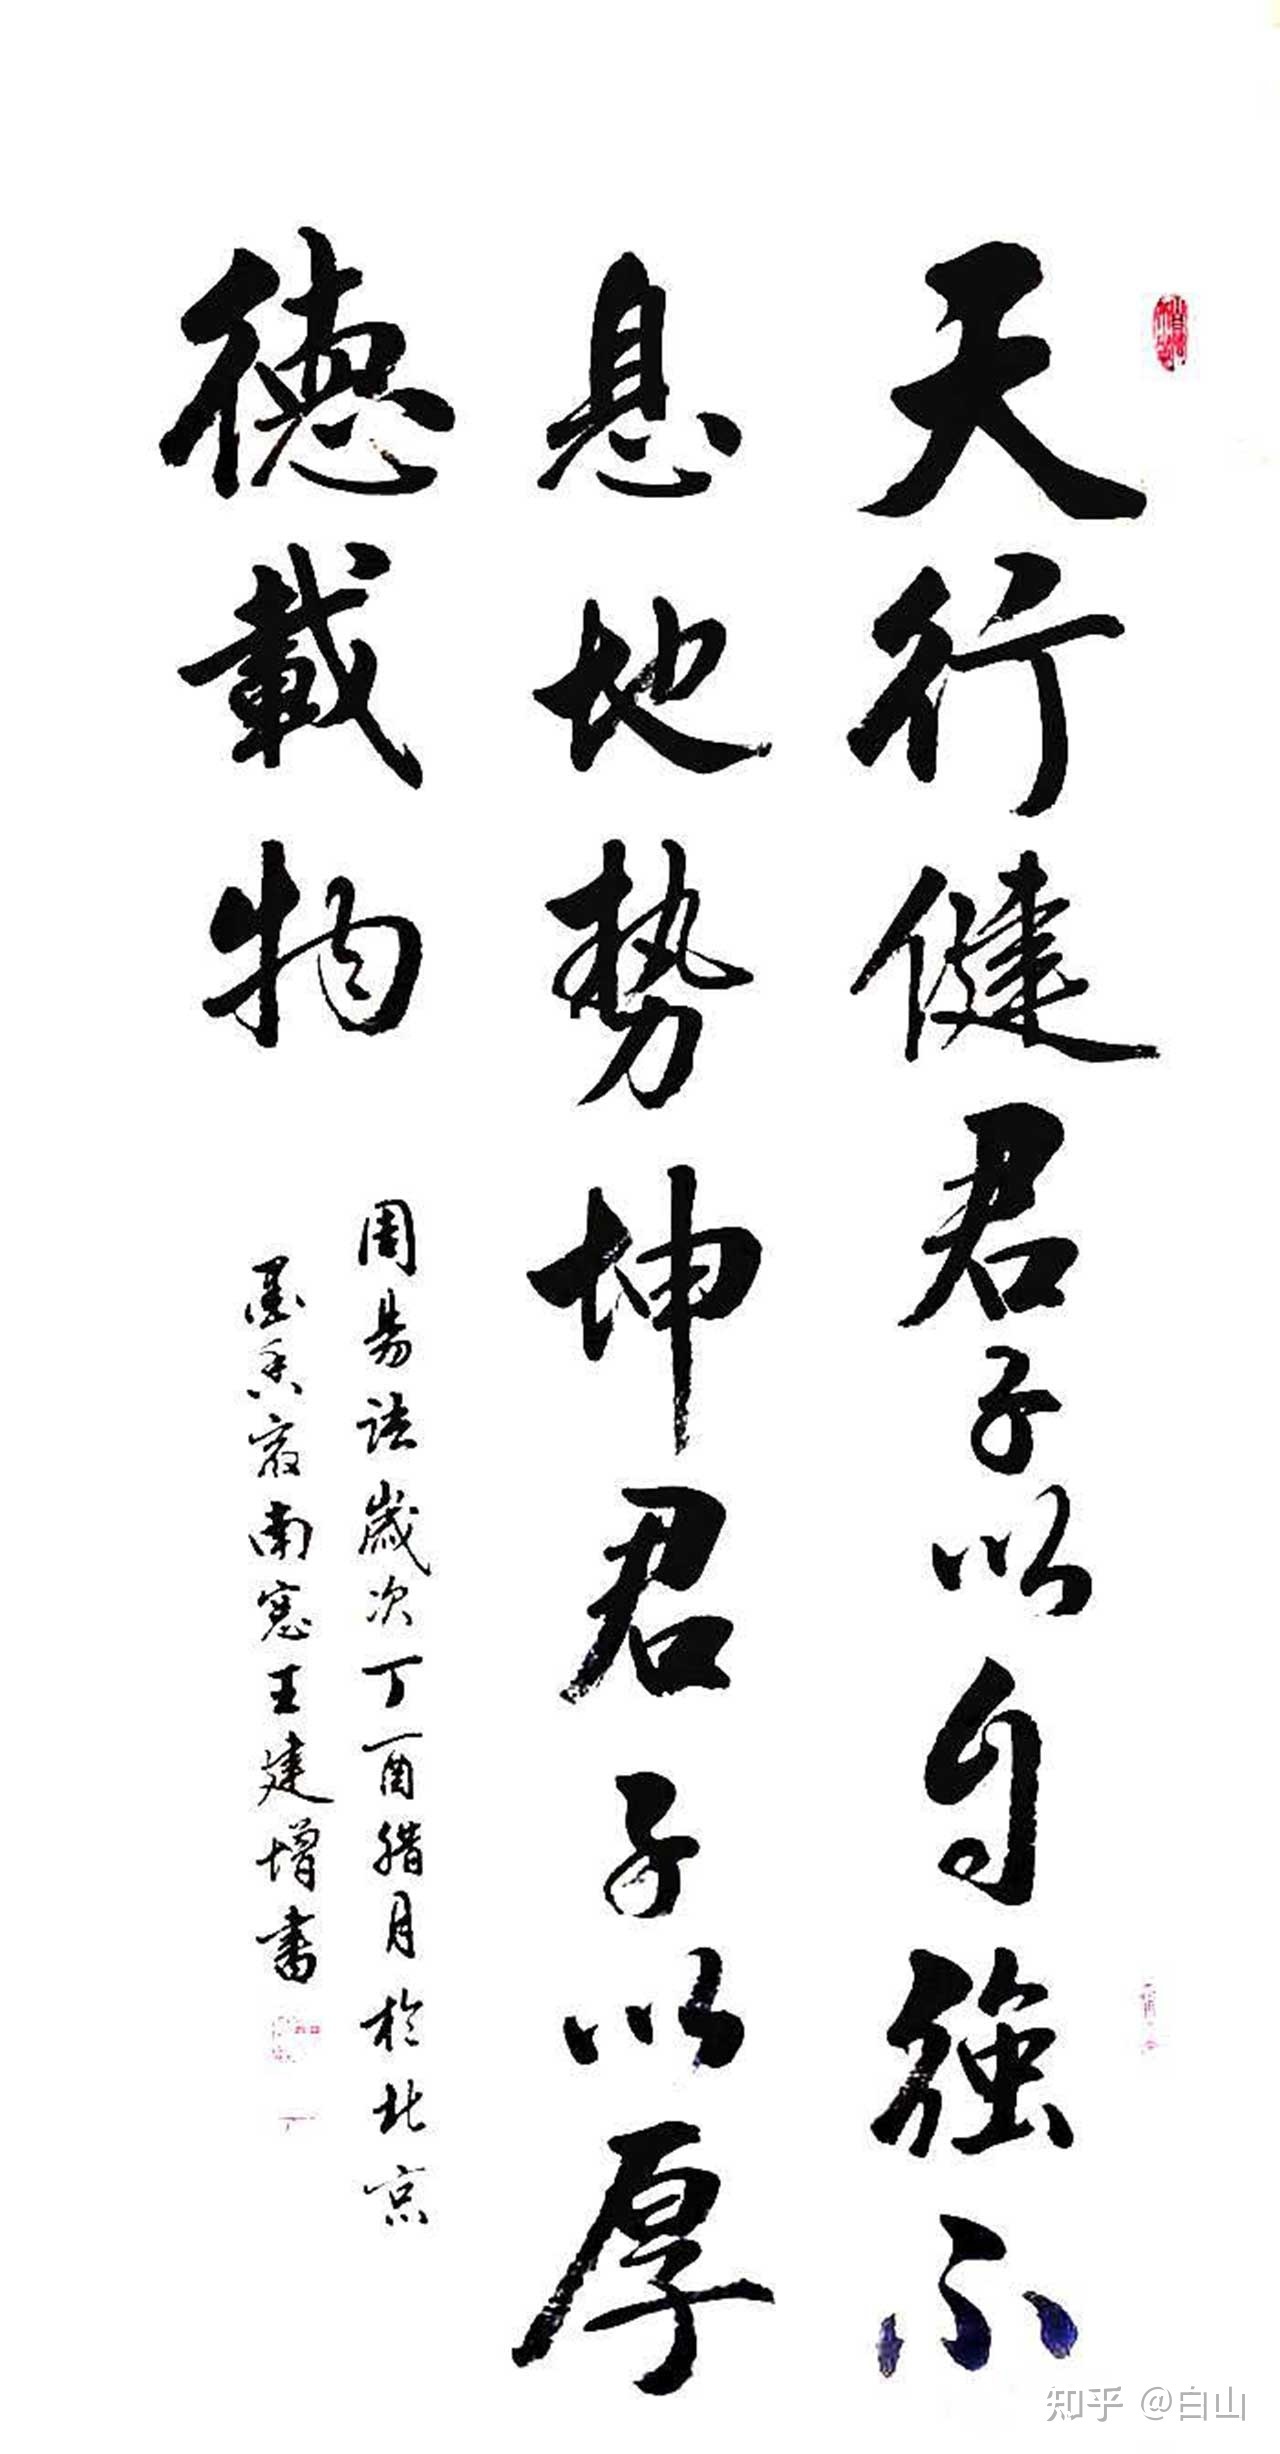 天行健君子以自強不
息地势坤君子以厚
德載物
周易语歲次丁酉腊月於北京
墨香斋南窓王建增書
知乎 @白山